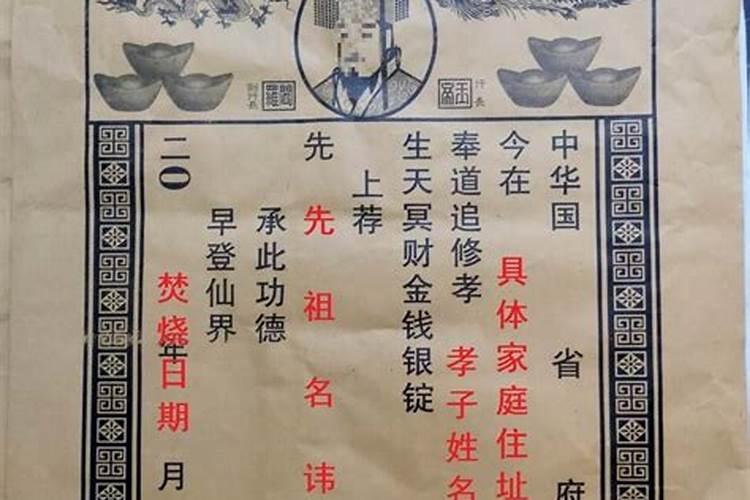 中华国省府
今在具体家庭住址
奉道追修孝孝子姓名
生天冥财金钱银锭
上荐
先先祖名讳
承此功德
早登仙界
二0焚烧日期年月